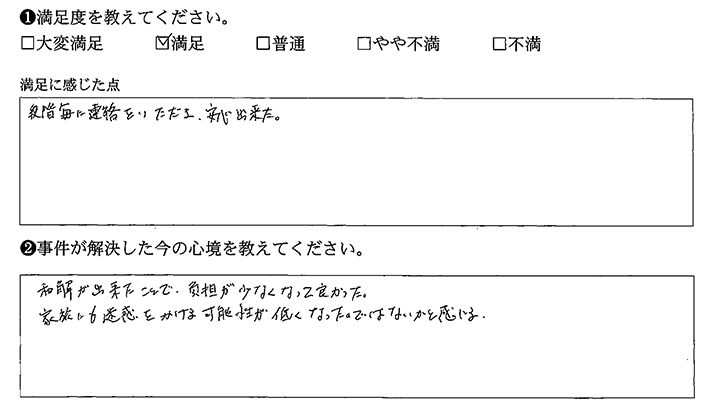 ❶満足度を教えてください。
□大変満足 ☑満足 □普通 □やや不満 □不満
満足に感じた点
段階毎に連絡をいただき、安心出来た。
❷事件が解決した今の心境を教えてください。
和解が出来たことで、負担が少なくなって良かった。
家族にも迷惑をかける可能性が低くなったのではないかと感じる。